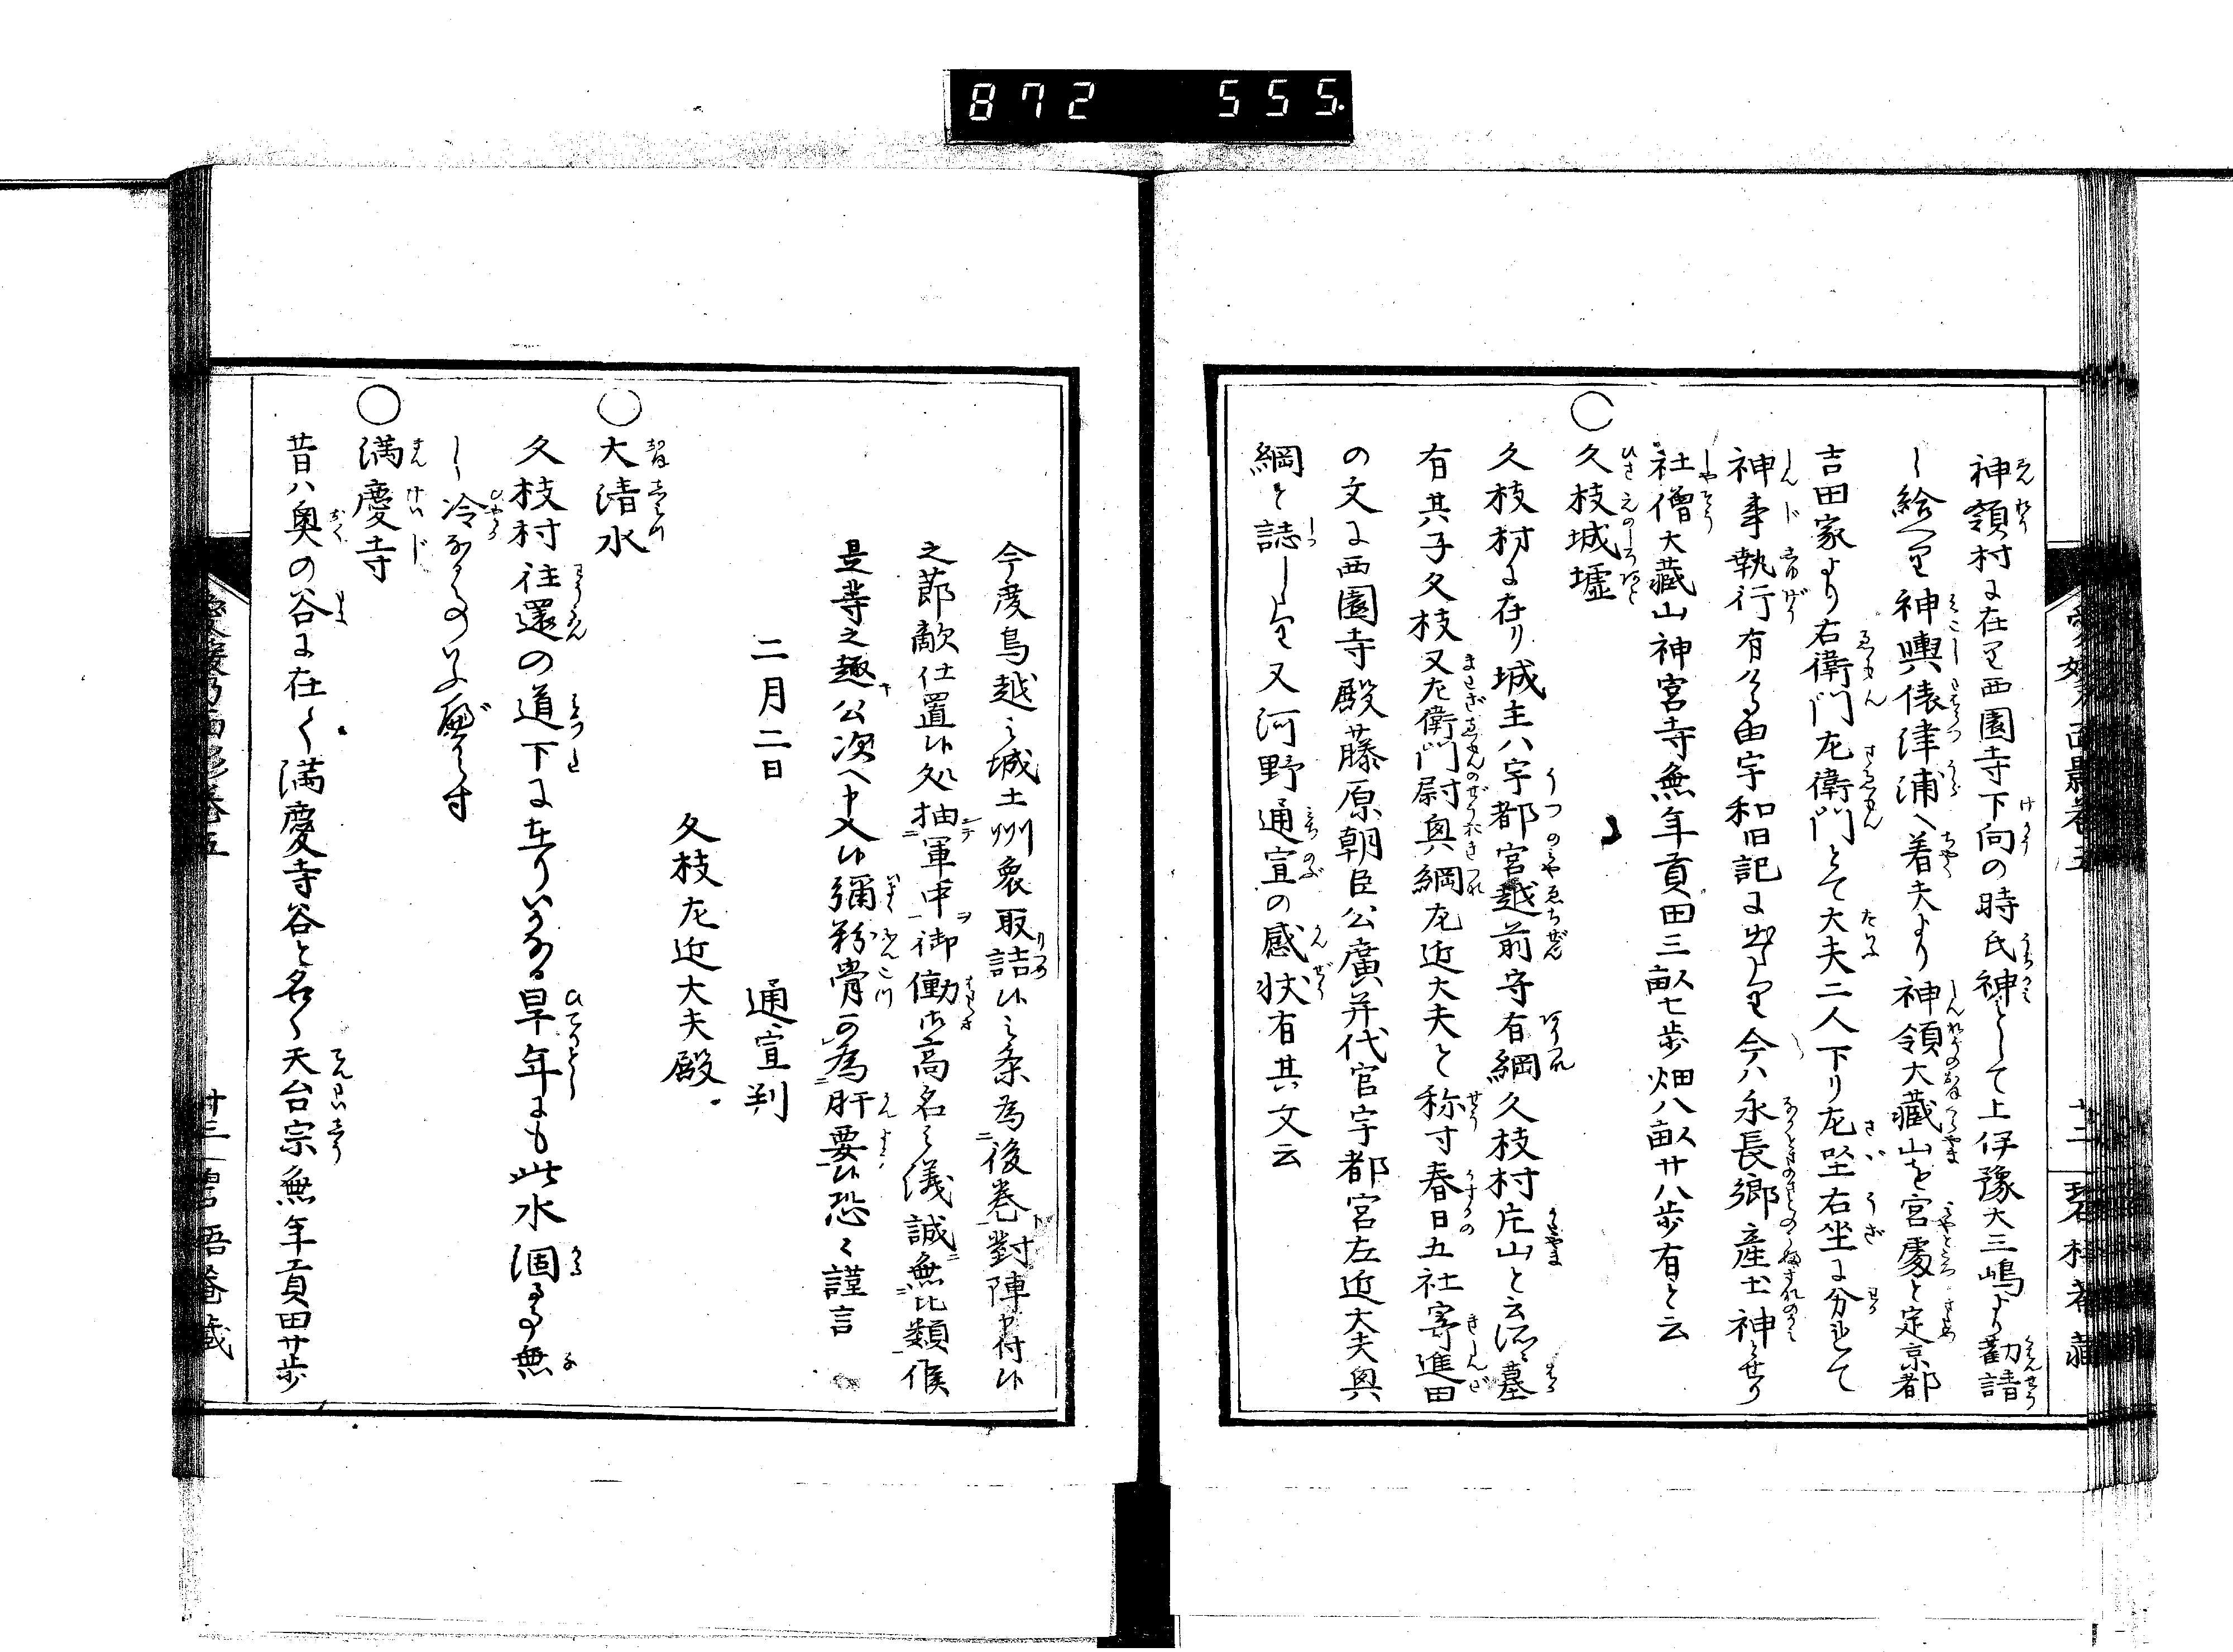 872 555.
神領村に在り西園寺下向の時氏神として上伊豫大三嶋より勸請
し給へり神輿俵津浦へ着夫より神領大藏山を宮處と定京都
吉田家より右衛門左衛門とて大夫二人下リ左坐右坐に分れて
神事執行有ける由宇和旧記に出たり今ハ永長郷産土神とせり
社僧大藏山神宮寺無年貢田三畝七歩畑八畝廿八歩有と云
○久枝城墟
久枝村に在リ城主ハ宇都宮越前守有綱久枝村庄山と云所に墓
有其子久枝又左衛門尉興綱左近大夫と称す春日五社寄進田
の文に西園寺殿藤原朝臣公廣并代官宇都宮左近大夫興
綱と誌しあり又河野通宣の感状有其文云
今度鳥越之城土州衆取詰候之条為後巻對陣申付候
之節敵仕置候処抽軍中御働御高名之儀誠無比類候
是等之趣公次へ申入候彌粉骨可為肝要候恐々謹言
二月二日
通宣判
久枝左近大夫殿
○大清水
久枝村往還の道下に在りいかなる旱年にも此水涸る事無
し冷なるのいふ
○満慶寺
昔ハ奥の谷に在て満慶寺谷と名く天台宗無年貢田廿歩